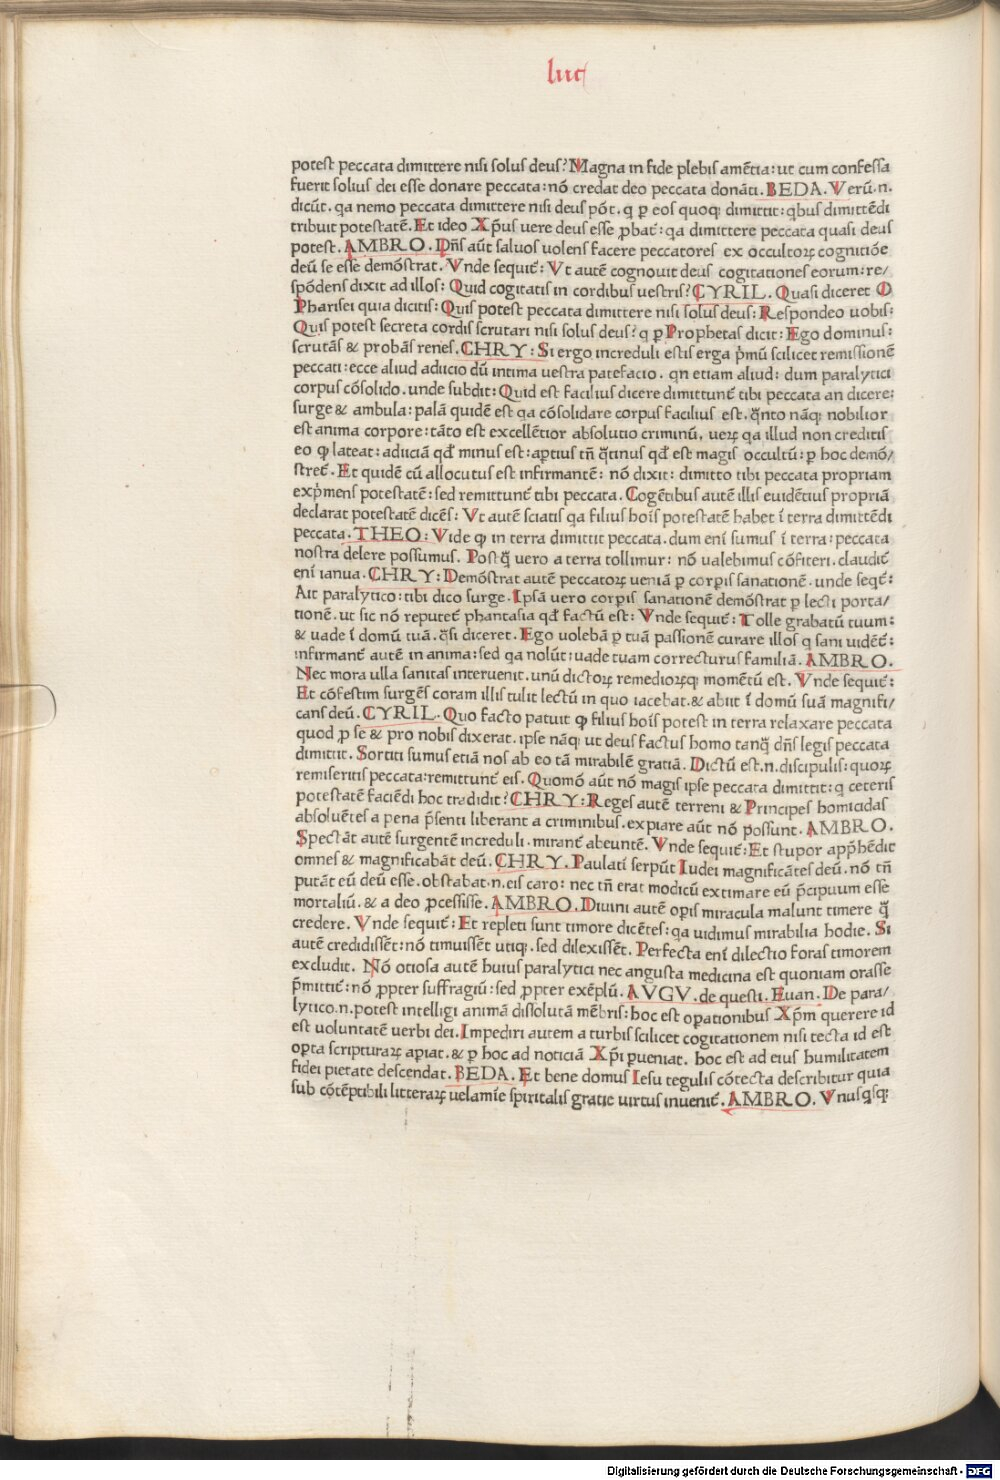 luc
potest peccata dimittere nisi solus deus? Magna in fide plebis amẽtia: ut cum confessa
fuerit solius dei esse donare peccata: nõ credat deo peccata donãti. BEDA. Verũ .n.
dicũt. qa nemo peccata dimittere nisi deus põt. q ꝑ eos quoqꝫ dimittit: qbus dimittẽdi
tribuit potestatẽ. Et ideo Xp̃us uere deus esse ꝓbat᷑: qa dimittere peccata quasi deus
potest. AMBRO. Dñs aũt saluos uolens facere peccatores ex occultoꝝ cognitiõe
deũ se esse demõstrat. Vnde sequit᷑: Vt autẽ cognouit deus cogitationes eorum: re/
spõdens dixit ad illos: Quid cogitatis in cordibus uestris? CYRIL. Quasi diceret O
Pharisei quia dicitis: Quis potest peccata dimittere nisi solus deus: Respondeo uobis:
Quis potest secreta cordis scrutari nisi solus deus? q ꝑ Prophetas dicit: Ego dominus:
scrutãs & probãs renes. CHRY: Si ergo increduli estis erga p̃mũ scilicet remissionẽ
peccati: ecce aliud adiicio dũ intima uestra patefacio. qn etiam aliud: dum paralytici
corpus cõsolido. unde subdit: Quid est facilius dicere dimittunt᷑ tibi peccata an dicere:
surge & ambula: palã quidẽ est qa cõsolidare corpus facilius est. q̃nto nãqꝫ nobilior
est anima corpore: tãto est excellẽtior absolutio criminũ, ueꝝ qa illud non creditis
eo ꝙ lateat: adiiciã qđ minus est: aptius tñ q̃tinus qđ est magis occultũ: ꝑ hoc demõ/
stret᷑. Et quidẽ cũ allocutus est infirmantẽ: nõ dixit: dimitto tibi peccata propriam
exp̃mens potestatẽ: sed remittunt᷑ tibi peccata. Cogẽtibus autẽ illis euidẽtius propriã
declarat potestatẽ dicẽs: Vt autẽ sciatis qa filius hoĩs potestatẽ habet ĩ terra dimittẽdi
peccata. THEO: Vide ꝙ in terra dimittit peccata. dum enĩ sumus ĩ terra: peccata
nostra delere possumus. Postq̃ uero a terra tollimur: nõ valebimus cõfiteri. claudit᷑
enĩ ianua. CHRY: Demõstrat autẽ peccatoꝝ ueniã ꝑ corꝑis sanationẽ. unde seqt᷑:
Ait paralytico: tibi dico surge. Ipsã uero corꝑis sanationẽ demõstrat ꝑ lecti porta/
tionẽ. ut sic nõ reputet᷑ phantasia qđ factũ est: Vnde sequit᷑: Tolle grabatũ tuum:
& uade ĩ domũ tuã. q̃si diceret. Ego uolebã ꝑ tuã passionẽ curare illos q sani uidẽt᷑:
infirmant᷑ autẽ in anima: sed qa nolũt: uade tuam correcturus familiã. AMBRO.
Nec mora ulla sanitas interuenit. unũ dictoꝝ remedioꝝqꝫ momẽtũ est. Vnde sequit᷑:
Et cõfestim surgẽs coram illis tulit lectũ in quo iacebat. & abiit ĩ domũ suã magnifi/
cans deũ. CYRIL. Quo facto patuit ꝙ filius hoĩs potest in terra relaxare peccata
quod ꝓ se & pro nobis dixerat. ipse nãqꝫ ut deus factus homo tanq̃ dñs legis peccata
dimittit. Sortiti sumus etiã nos ab eo tã mirabilẽ gratiã. Dictũ est .n. discipulis: quoꝝ
remiseritis peccata: remittunt᷑ eis. Quomõ aũt nõ magis ipse peccata dimittit: q ceteris
potestatẽ faciẽdi hoc tradidit? CHRY: Reges autẽ terreni & Principes homicidas
absoluẽtes a pena p̃senti liberant a criminibus. expiare aũt nõ possunt. AMBRO.
Spectãt autẽ surgentẽ increduli. mirant᷑ abeuntẽ. Vnde sequit᷑: Et stupor app̃hẽdit
omnes & magnificabãt deũ. CHRY. Paulatĩ serpũt Iudei magnificãtes deũ. nõ tñ
putãt eũ deũ esse. obstabat .n. eis caro: nec tñ erat modicũ extimare eũ p̃cipuum esse
mortaliũ. & a deo ꝓcessisse. AMBRO. Diuini autẽ oꝑis miracula malunt timere q̃
credere. Vnde sequit᷑: Et repleti sunt timore dicẽtes: qa uidimus mirabilia hodie. Si
autẽ credidissẽt: nõ timuissẽt utiqꝫ. sed dilexissẽt. Perfecta enĩ dilectio foras timorem
excludit. Nõ otiosa autẽ huius paralytici nec angusta medicina est quoniam orasse
p̃mittit᷑: nõ ꝓpter suffragiũ: sed ꝓpter exẽplũ. AVGV. de questi. Euan. De para/
lytico .n. potest intelligi animã dissolutã mẽbris: hoc est oꝑationibus Xp̃m querere id
est uoluntatẽ uerbi dei. Impediri autem a turbis scilicet cogitationem nisi tecta id est
oꝑta scripturaꝝ aꝑiat. & ꝑ hoc ad noticiã Xp̃i ꝑueniat. hoc est ad eius humilitatem
fidei pietate descendat. BEDA. Et bene domus Iesu tegulis cõtecta describitur quia
sub cõtẽptibili litteraꝝ uelamĩe spiritalis gratie uirtus inuenit᷑. AMBRO. Vnusqsqꝫ
Digitalisierung gefördert durch die Deutsche Forschungsgemeinschaft - DFG